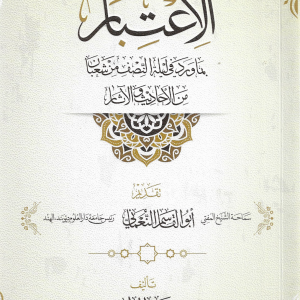 الاعتبار
بما ورد في ليلة النصف من شعبان
من الأحاديث والآثار
تقديم
سماحة الشيخ المفتي أبو القاسم النعماني رئيس جامعة دار العلوم ديوبند، الهند
تأليف